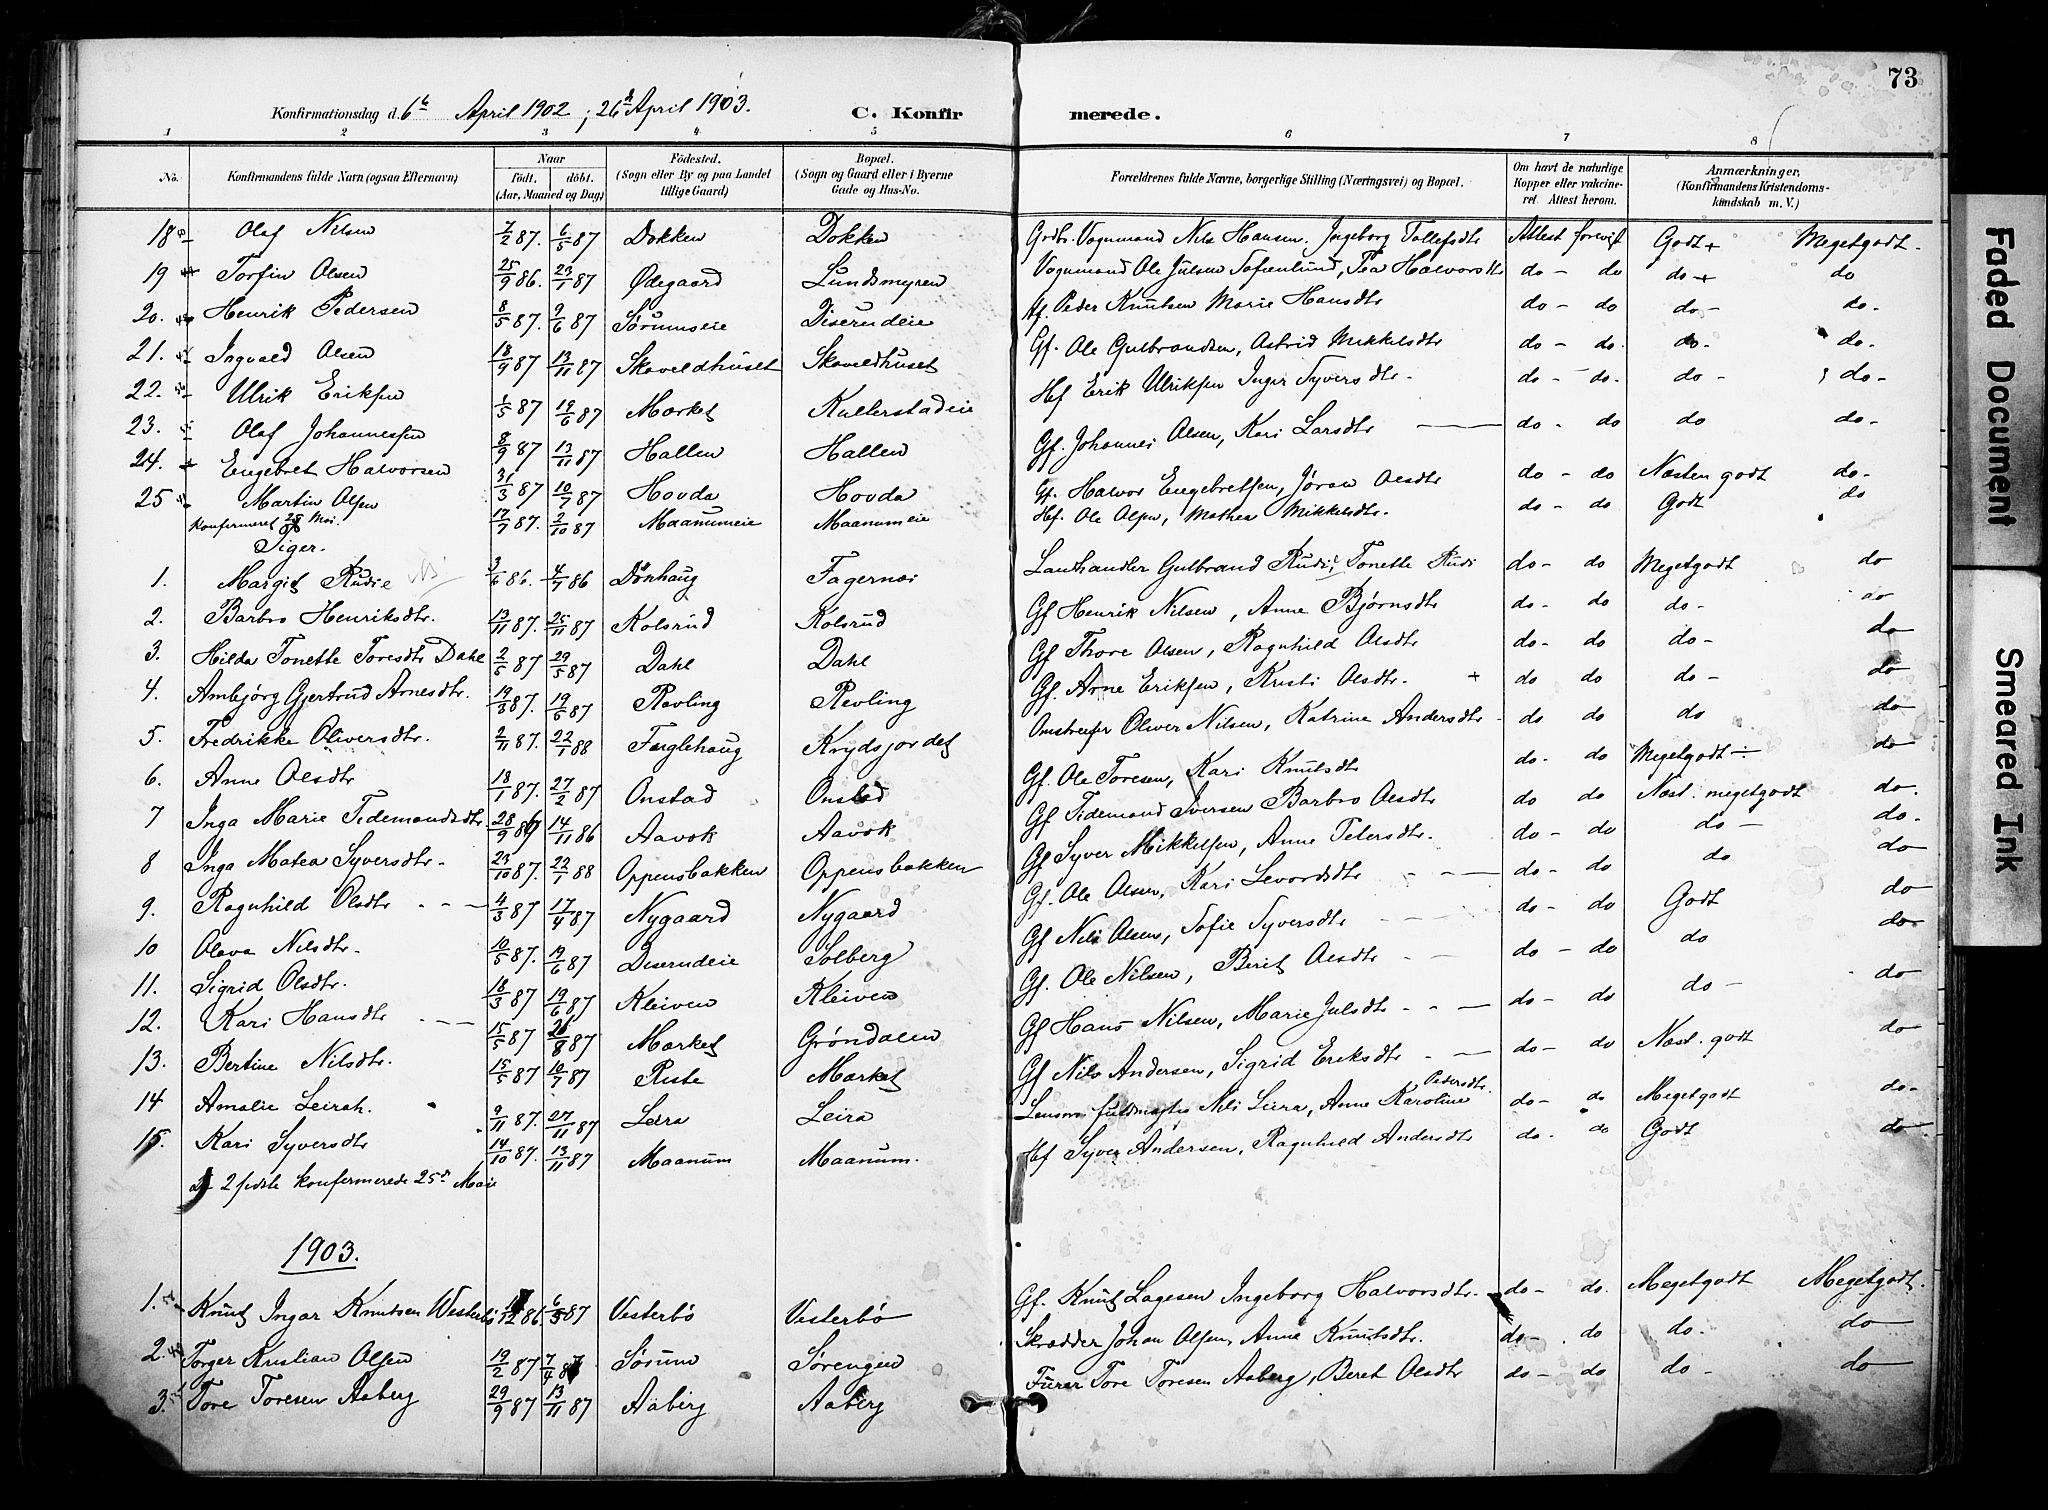 73
Konfirmationsdag d. 6te April 1902; 26de April 1903. C. Konfirmerede.
1 2 3 4 5 6 7 8
No. Konfirmandens fulde Navn (ogsaa Efternavn) Naar født. døbt. (Aar, Maaned og Dag) Fødested. (Sogn eller By og paa Landet tillige Gaard) Bopæl. (Sogn og Gaard eller i Byerne Gade og Hus-No. Forældrenes fulde Navne, borgerlige Stilling (Næringsvei) og Bopæl. Om havt de naturlige Kopper eller vakcineret. Attest herom. Anmærkninger, (Konfirmandens Kristendomskundskab m. V.)
18 Olaf Nilsen 7/2 87. 6/5 87 Dokken Dokken Grdbr. Vognmand Nils Hansen, Ingeborg Tollefsdtr Attest forevist Godt + Megetgodt.
19 Torfin Olsen 25/9 86. 23/1 87 Ødegaard Lundsmyren Vognmand Ole Julsen Tofienlund, Tea Halvorsdtr do - do do + do
20. Henrik Pedersen 8/5 87. 9/6 87 Sørumseie Diserudeie Hf. Peder Knutsen Marie Hansdtr do - do do - do.
21. Ingvald Olsen 18/9 87 13/11 87 Skaveldhuset Skaveldhuset Gf. Ole Gulbrandsen, Astrid Mikkelsdtr do - do. do. do.
22. Ulrik Eriksen 1/5 87 19/6 87 Market Kallerstadeie Hf Erik Ulriksen Inger Syversdtr. do - do. do - do -
23. Olaf Johannessen 8/9 87 13/11 87 Hallen Hallen Gf. Johannes Olsen, Kari Larsdtr do - do do do -
24. Engebret Halvorsen 31/3 87 10/7 87 Hovda Hovda Gf. Halvor Engebretsen, Jøran Olsdtr do - do Næsten godt do -
25 Martin Olsen 17/7 87. 2/10 87 Maanumeie Maanumeie Hf. Ole Olsen, Mathea Mikkelsdtr. do - do Godt do
Konfermeret 25 Mai.
Piger.
1. Margit Rudie 3/6 86. 4/7 86 Dønhaug Fagernæs Lanhandler Gulbrand Rudi, Tonette Rudi do - do Megetgodt do
2. Barbro Henriksdtr. 13/11 87. 25/11 87 Kolsrud Kolsrud Gf Henrik Nilsen, Anne Bjørnsdtr do - do do - do
3. Hilda Tonette Toresdtr Dahl 2/5 87 29/5 87 Dahl Dahl Gf Thore Olsen, Ragnhild Olsdtr do - do do - do
4. Ambjørg Gjertrud Arnesdtr. 19/3 87. 19/6 87 Røvling Røvling Gf. Arne Eriksen, Kristi Olsdtr. + do do do - do
5. Fredrikke Oliversdtr. 2/11 87. 22/1 88 Fuglehaug Krydsjordet Omstreifer Oliver Nilsen, Katrine Andersdtr do do do do
6. Anne Olsdtr 18/1 87. 27/2 87 Onstad Onstad Gf. Ole Toresen, Kari Knutsdtr do - do Megetgodt ÷ do
7 Inga Marie Tidemandsdtr 28/9 86 14/11 86 Aavok Aavok Gf Tidemand Iversen Barbro Olsdtr do do Næst. megetgodt do.
8 Inga Matea Syversdtr. 23/10 87. 22/1 88 Oppensbakken Oppensbakken Gf Syver Mikkelsen, Anne Petersdtr. do - do do - do.
9. Ragnhild Olsdtr 4/3 87 17/4 87 Nygaard Nygaard Gf. Ole Olsen, Kari Levordsdtr do - do do do
10 Oleva Nilsdtr. 10/5 87. 19/6 87 Diserudeie Solberg Gf Nils Olsen, Sofie Syversdtr do - do Godt do
11. Sigrid Olsdtr. 18/3 87 19/6 87 Kleiven Kleiven Gf. Ole Nilsen, Berit Olsdtr do - do do do.
12. Kari Hansdtr 15/5 87 21/8 87 Market Grøndalen Gf Hans Nilsen, Marie Julsdtr do - do do - do
13. Bertine Nilsdtr. 15/5 87 10/7 87 Riste Market Gf Nils Andersen, Sigrid Eriksdtr do - do Næst. godt do
14 Amalie Leirah. 9/11 87. 27/11 87 Leira Leira Lensm. fuldmægtig Nils Leira, Anne Karoline Pedersdtr. do - do Megetgodt do -
15. Kari Syversdtr 14/10 87. 13/11 87 Maanum Maanum. Hf Syver Andersen, Ragnhild Andersdtr do - do Godt do -
De 2 sidste konfermerede 25de Mai
1903.
1. Knut Ingar Knutsen Westerbø 17/12 86. 6/3 87 Vesterbø Vesterbø Gf. Knut Lagesen Ingeborg Halvorsdtr. do - do. Megetgodt Megetgodt.
2. Torger Kristian Olsen 19/2 87 7/4 87 Sørum Sørengen Skrædder Johan Olsen, Anne Knutsdtr. do - do do. do
3. Tore Toresen Aaberg 29/9 87 13/11 87 Aaberg Aaberg Furer Tore Toresen Aaberg, Beret Olsdtr do - do do - do
Faded Document
Smeared Ink